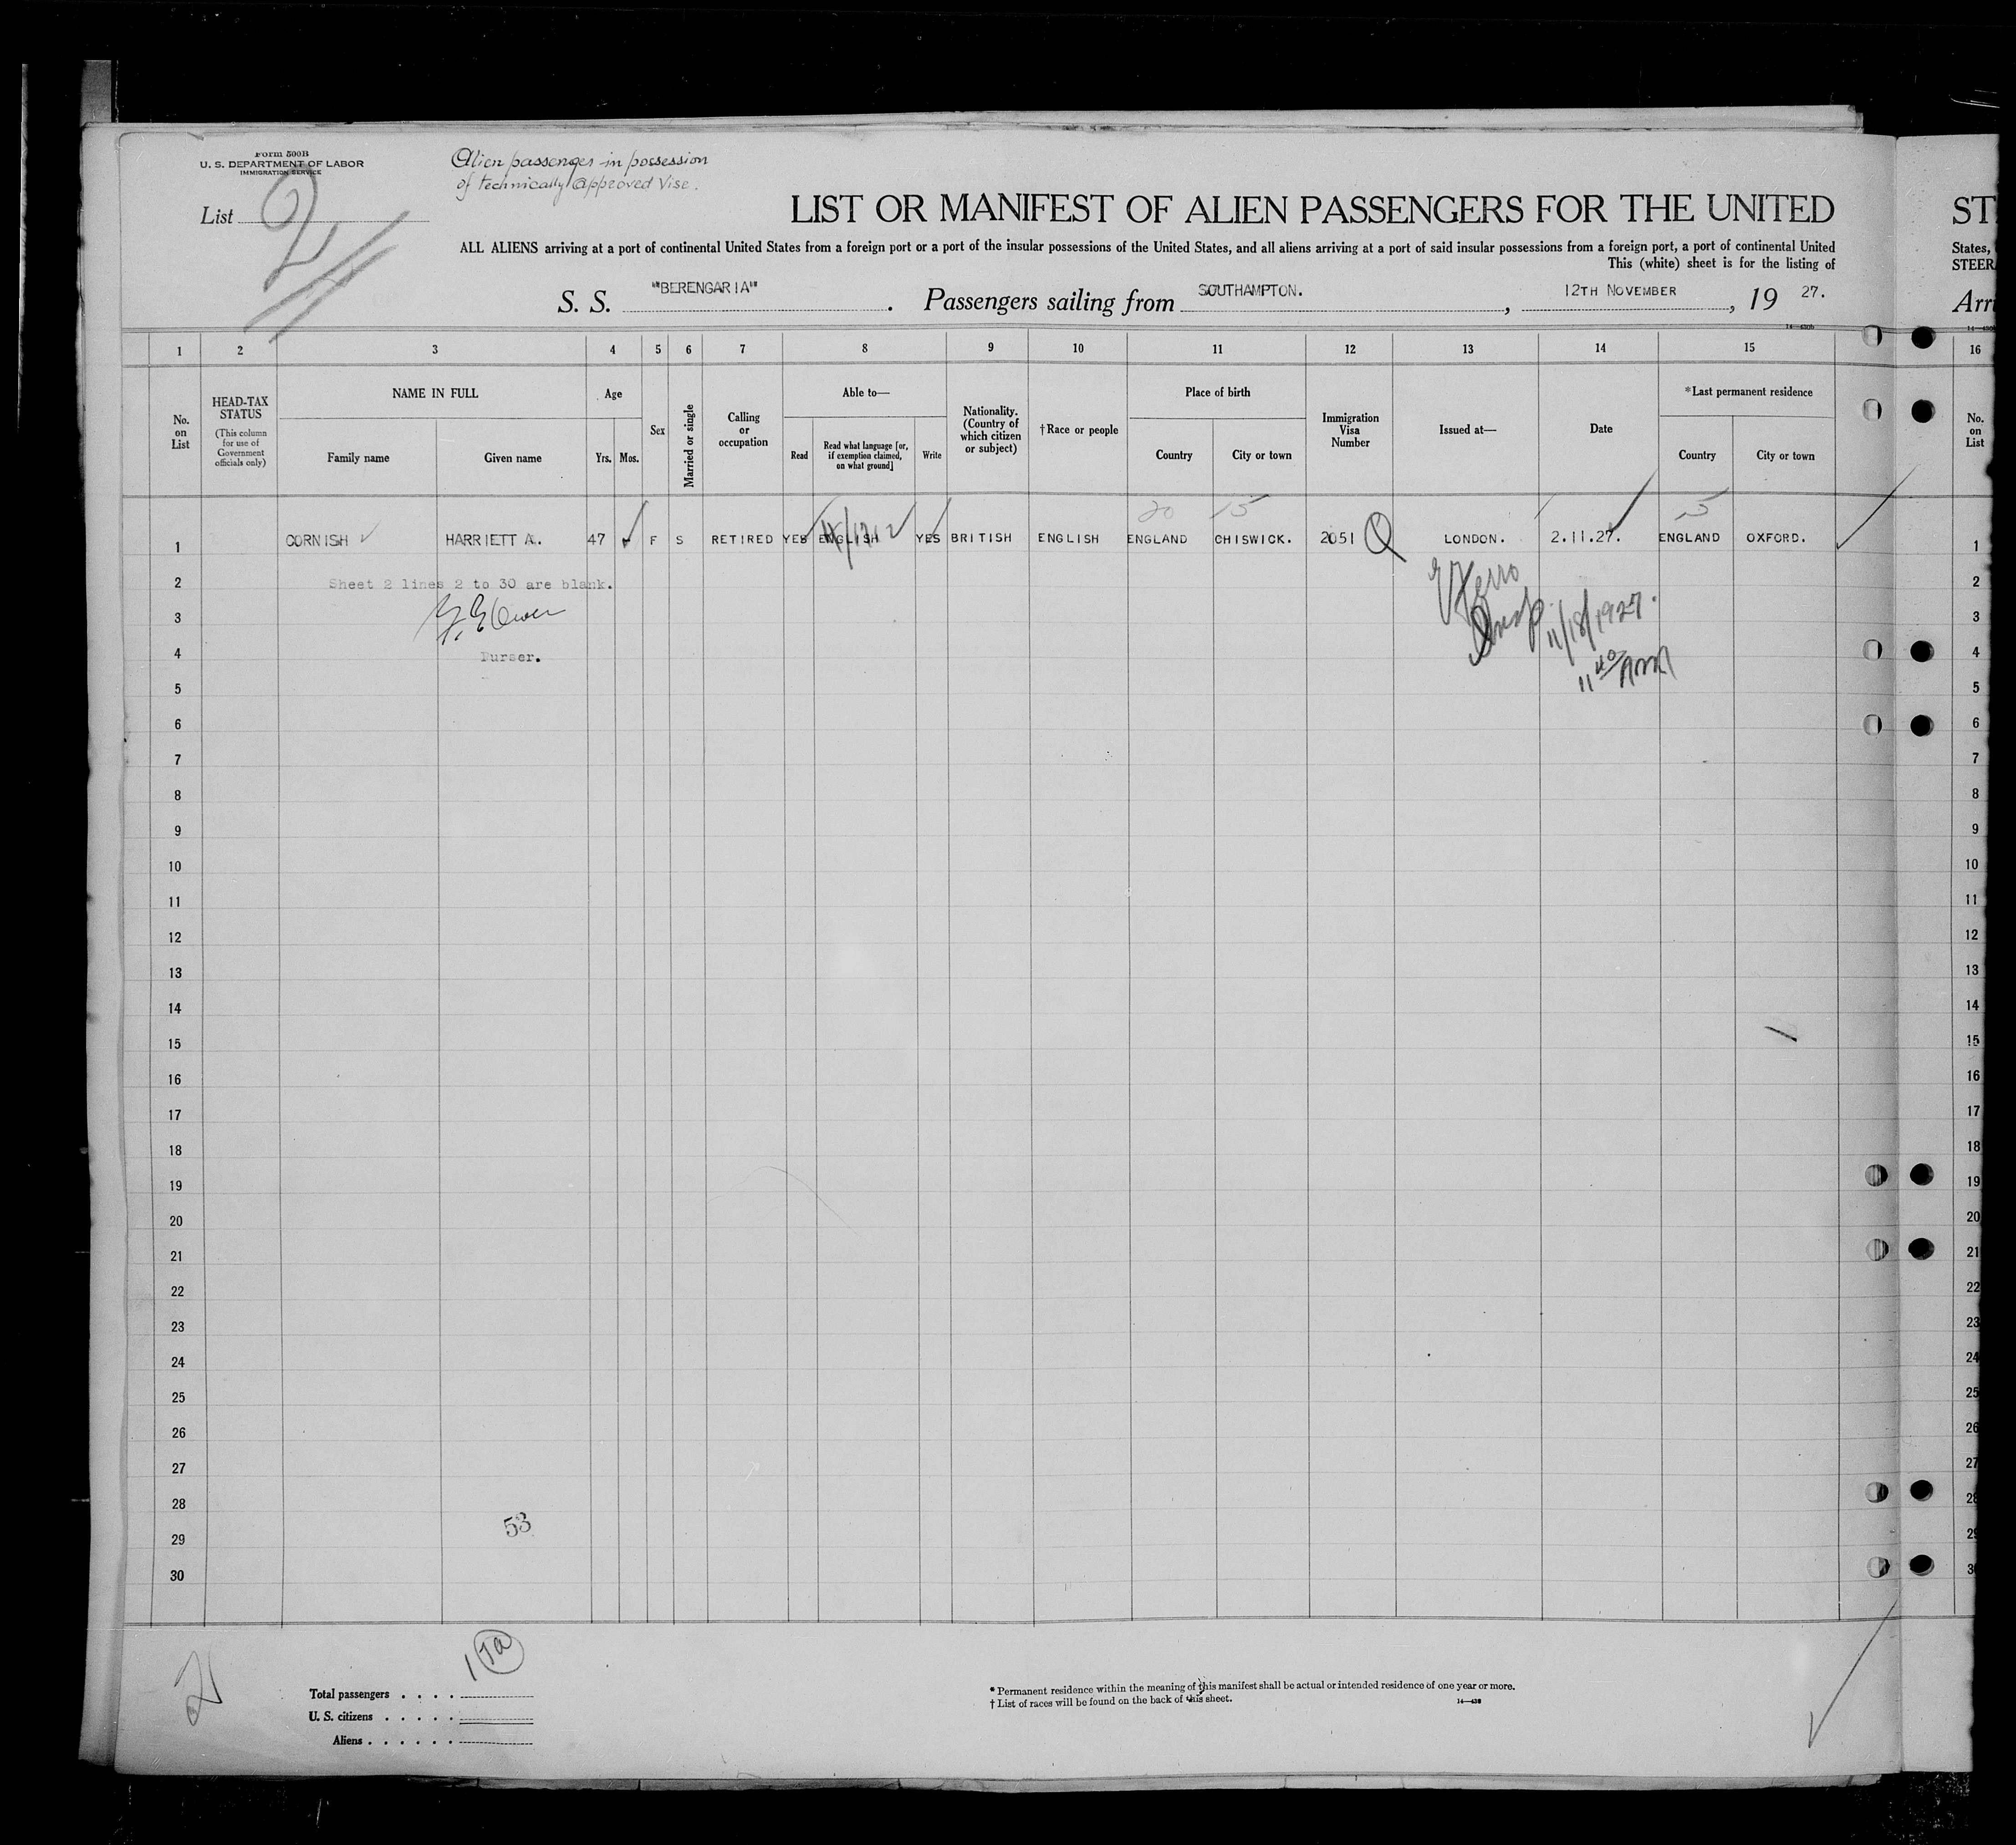 Form 500B
U. S. DEPARTMENT OF LABOR
IMMIGRATION SERVICE
Alien passenger in possession
of technically approved Vise.
List 2
LIST OR MANIFEST OF ALIEN PASSENGERS FOR THE UNITED
ST
ALL ALIENS arriving at a port of continental United States from a foreign port or a port of the insular possessions of the United States, and all aliens arriving at a port of said insular possessions from a foreign port, a port of continental United
States,
This (white) sheet is for the listing of
STEER
S. S. "BERENGARIA" . Passengers sailing from SOUTHAMPTON. , 12TH NOVEMBER , 19 27.
Arri
1 2 3 4 5 6 7 8 9 10 11 12 13 14 15 16
No. on List
HEAD-TAX STATUS
(This column for use of Government officials only)
NAME IN FULL
Family name Given name
Age
Yrs. Mos.
Sex
Married or single
Calling or occupation
Able to—
Read
Read what language [or, if exemption claimed, on what ground]
Write
Nationality. (Country of which citizen or subject)
†Race or people
Place of birth
Country City or town
Immigration Visa Number
Issued at—
Date
*Last permanent residence
Country City or town
No. on List
20 15 5
1 CORNISH HARRIETT A. 47 F S RETIRED YES ENGLISH YES BRITISH ENGLISH ENGLAND CHISWICK. 2051 Q LONDON. 2.11.27. ENGLAND OXFORD. 1
2 Sheet 2 lines 2 to 30 are blank. 2
3 Insp. 11/18/1927. 3
4 Purser. 11 40 AM 4
5 5
6 6
7 7
8 8
9 9
10 10
11 11
12 12
13 13
14 14
15 15
16 16
17 17
18 18
19 19
20 20
21 21
22 22
23 23
24 24
25 25
26 26
27 27
28 28
53
29 29
30 3
2
1
Total passengers . . . .
U. S. citizens . . . . .
Aliens . . . . . .
* Permanent residence within the meaning of this manifest shall be actual or intended residence of one year or more.
† List of races will be found on the back of this sheet.